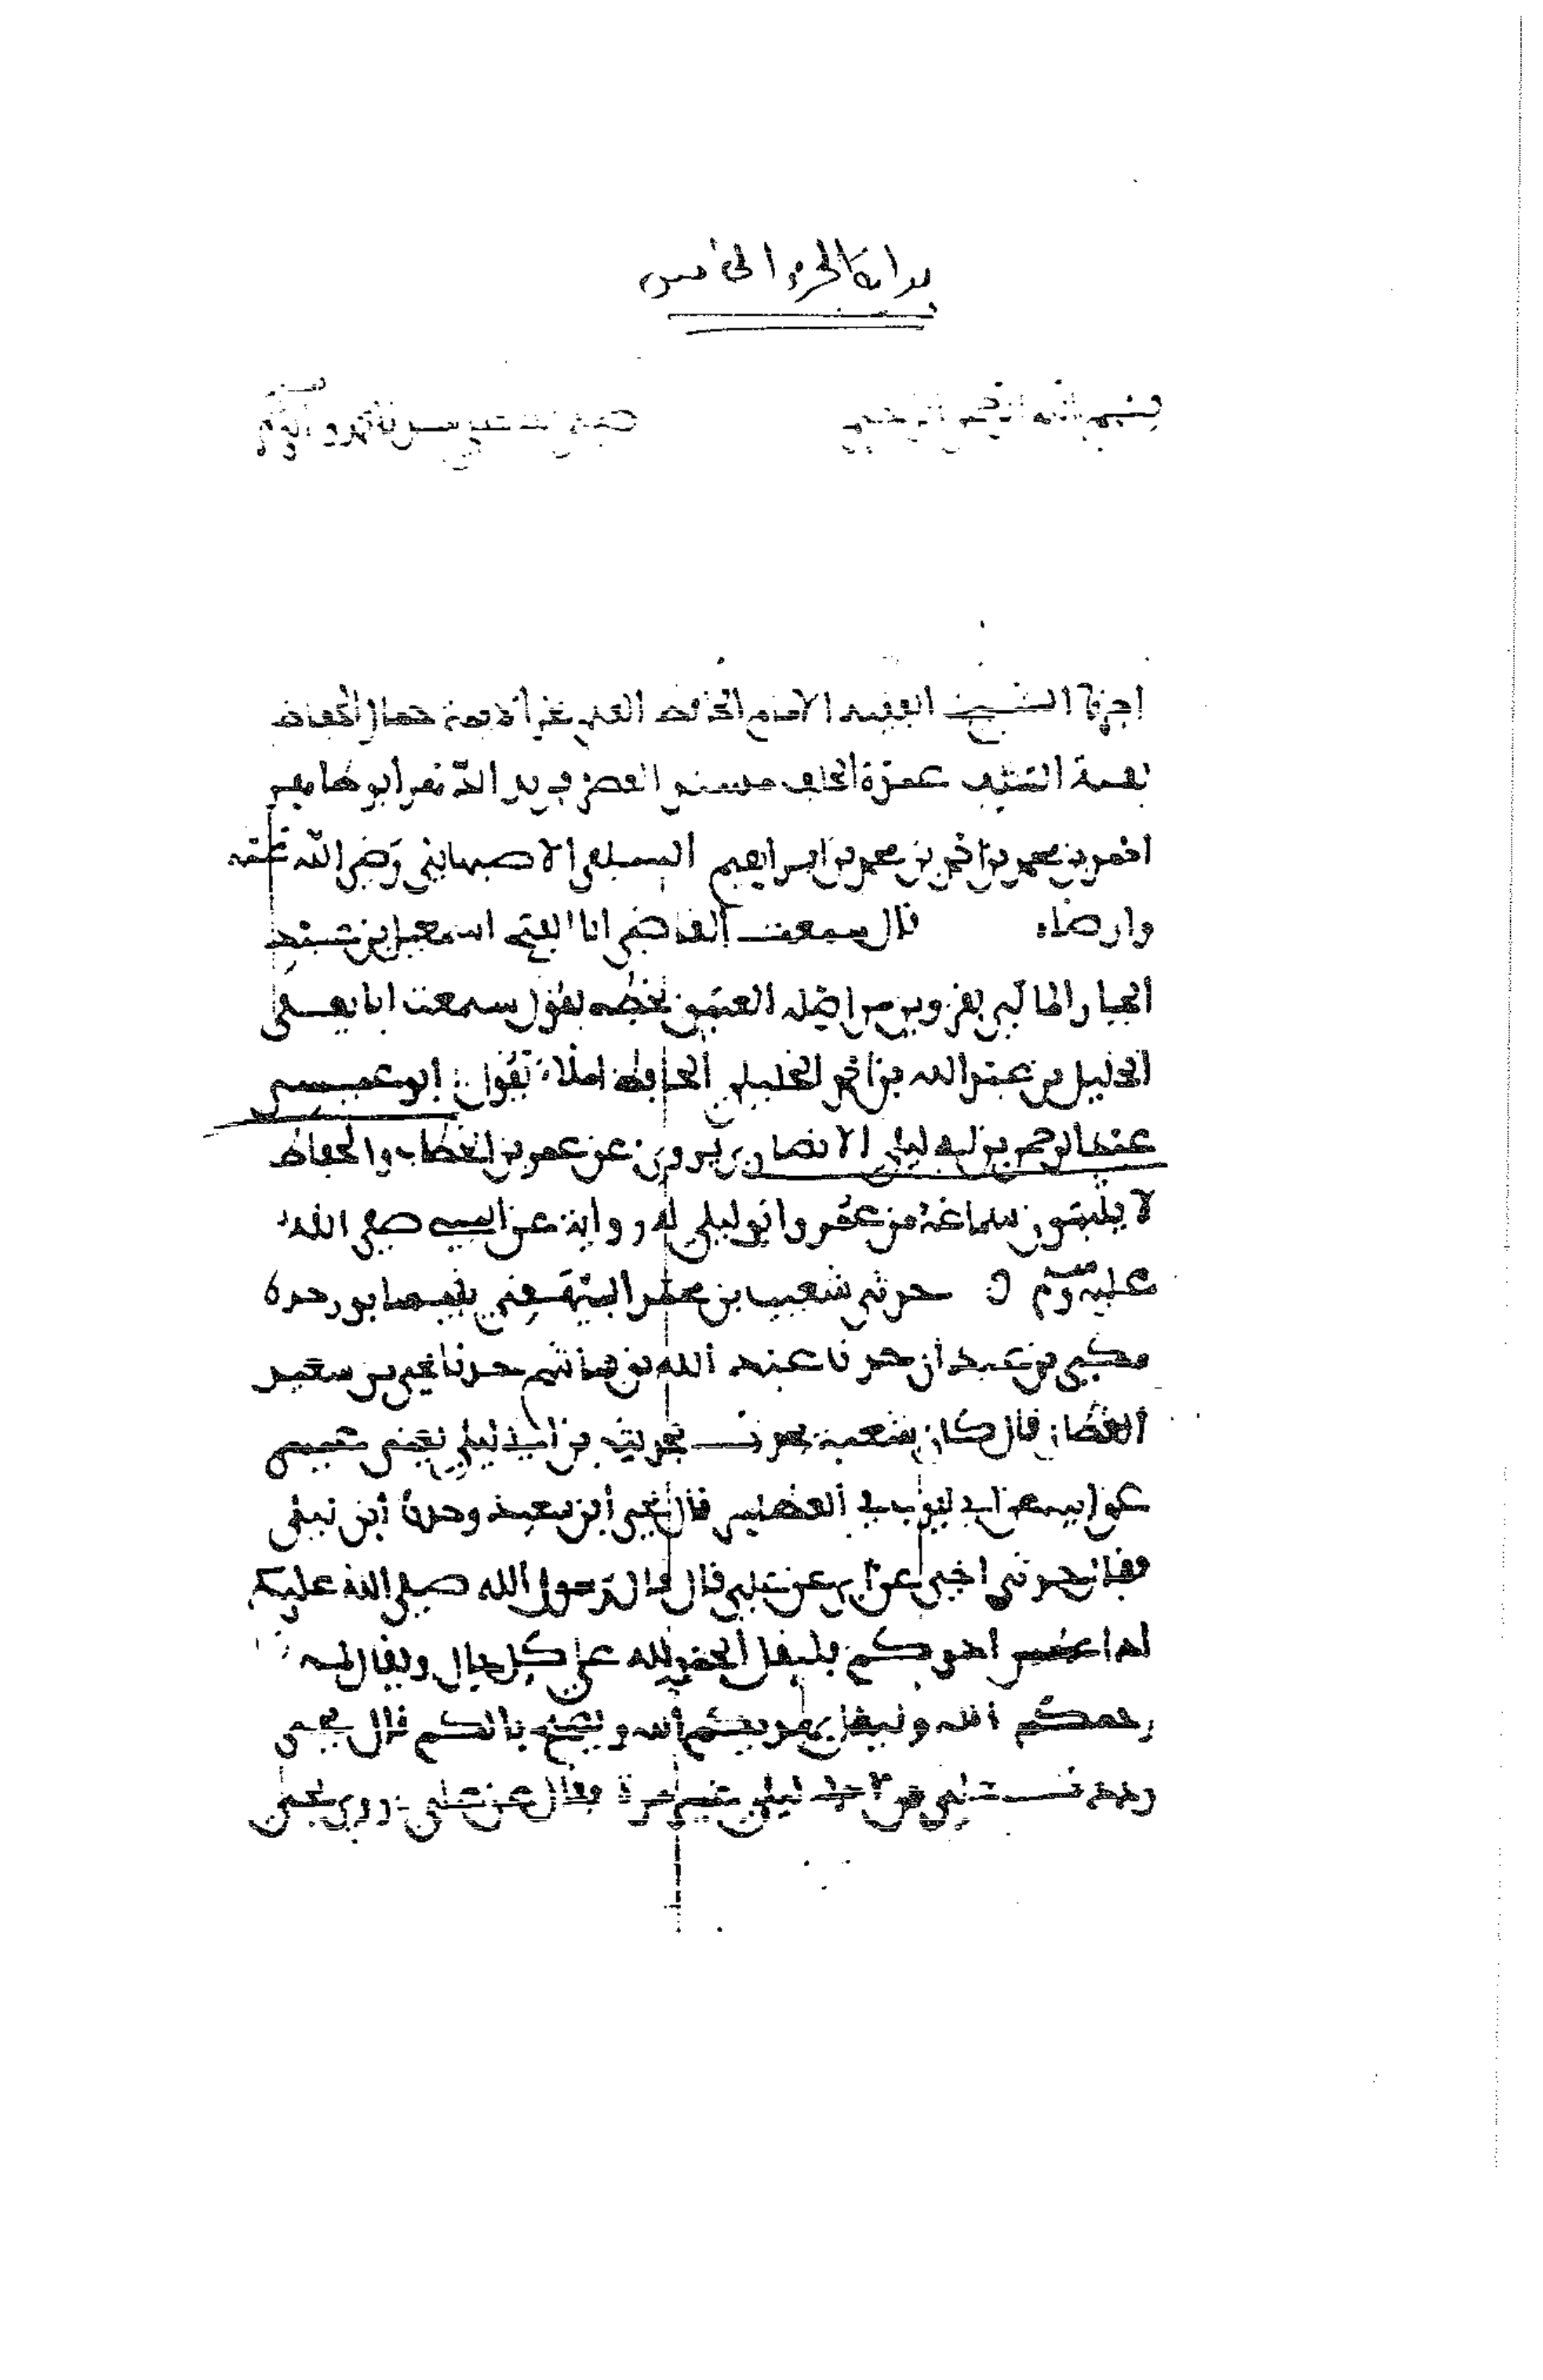 بداية الجزء الخامس
بسم الله الرحمن الرحيم صلى الله على سيدنا محمد وآله
اخبرنا الشيخ الفقيه الامام الحافظ العلم فخر الايمة جمال الحفاظ
بقية السلف عمدة الخلف مسند العصر فريد الدهر ابو طاهر
احمد بن محمد بن احمد بن محمد بن ابراهيم السلفي الاصبهاني رضي الله عنه
وارضاه قال سمعت القاضي ابا الفتح اسمعيل بن عبد
الجبار الماكي بقزوين من اصله العتيق بخطه يقول سمعت ابا يعلى
الخليل بن عبد الله بن احمد الخليلي الحافظ املاء يقول : ابو عيسى
عبد الرحمن بن ابي ليلى الانصاري يروي عن عمر بن الخطاب والحفاظ
لا يثبتون سماعه من عمر وابو ليلى له رواية عن النبي صلى الله
عليه وسلم حدثني شعيب بن محمد البيهقي بنيسابور حدثنا
مكي بن عبدان حدثنا عبد الله بن هاشم حدثنا يحيى بن سعيد
القطان قال كان شعبة يحدث بحديث بن ابي ليلى يعني عيسى
عن ابيه عن ابي ايوب في العطاس قال يحيى ابن سعيد وحدثنا ابن ليلى
فقال حدثني اخي عن ابي عن علي قال قال رسول الله صلى الله عليه
اذا عطس احدكم فليقل الحمد لله على كل حال وليقال له
رحمكم الله وليقل يهديكم الله ويصلح بالكم قال يحيى
غير مرة فقال عن علي روى يحيى